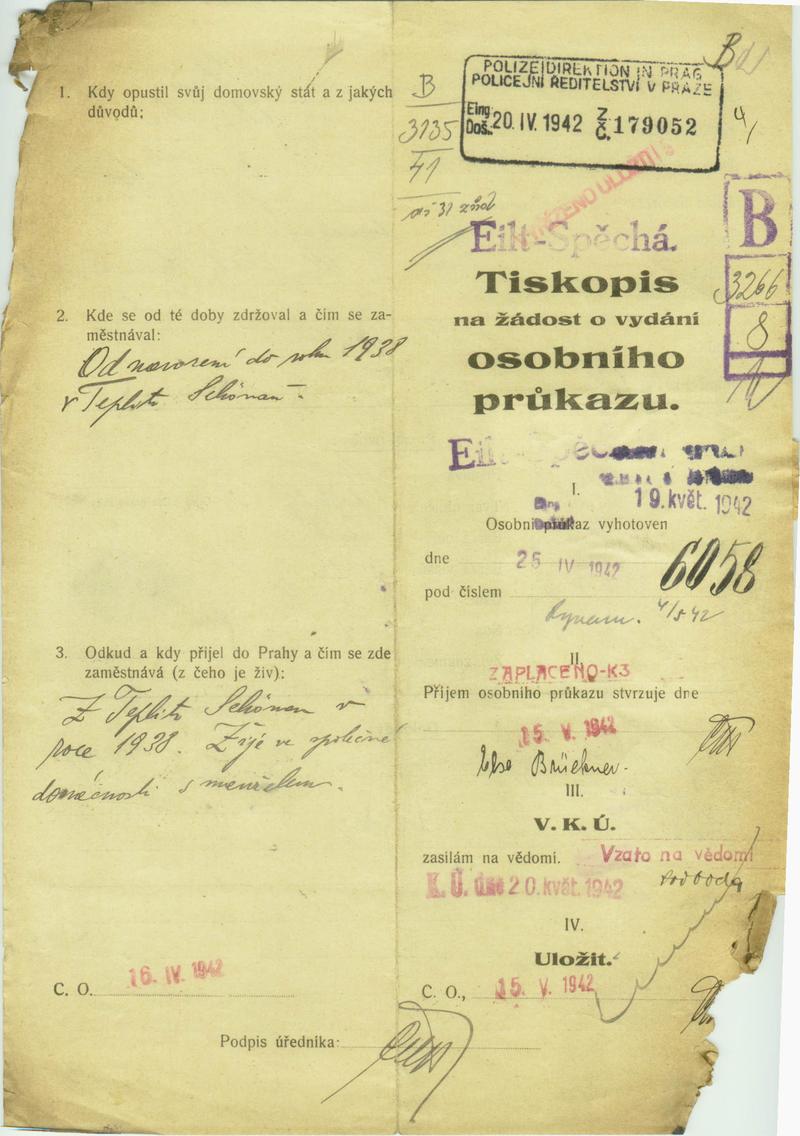 1. Kdy opustil svůj domovský stát a z jakých
důvodů:
2. Kde se od té doby zdržoval a čím se za-
městnával:
Od narození do roku 1938
v Teplitz Schönau.
3. Odkud a kdy přijel do Prahy a čím se zde
zaměstnává (z čeho je živ):
Z Teplitz Schönau v
roce 1938. Žije ve společné
domácnosti s manželem.
C. O. 16. IV. 1942
Podpis úředníka:
B
3135
41
POLIZEIDIREKTION IN PRAG
POLICEJNÍ ŘEDITELSTVÍ V PRAZE
Eing.
Doš. 20. IV. 1942 Z. Č. 179052
B
3266
8
Eilt-Spěchá.
Tiskopis
na žádost o vydání
osobního
průkazu.
19. květ. 1942
I.
Osobní průkaz vyhotoven
dne 25 IV 1942
pod číslem 6058
4/5 42
II.
ZAPLACENO-K3
Příjem osobního průkazu stvrzuje dne
15. V. 1942
Else Brückner.
III.
V. K. Ú.
zasílám na vědomí. Vzato na vědomí
K. Ú. dne 20. květ. 1942
IV.
Uložit.
C. O., 15. V. 1942